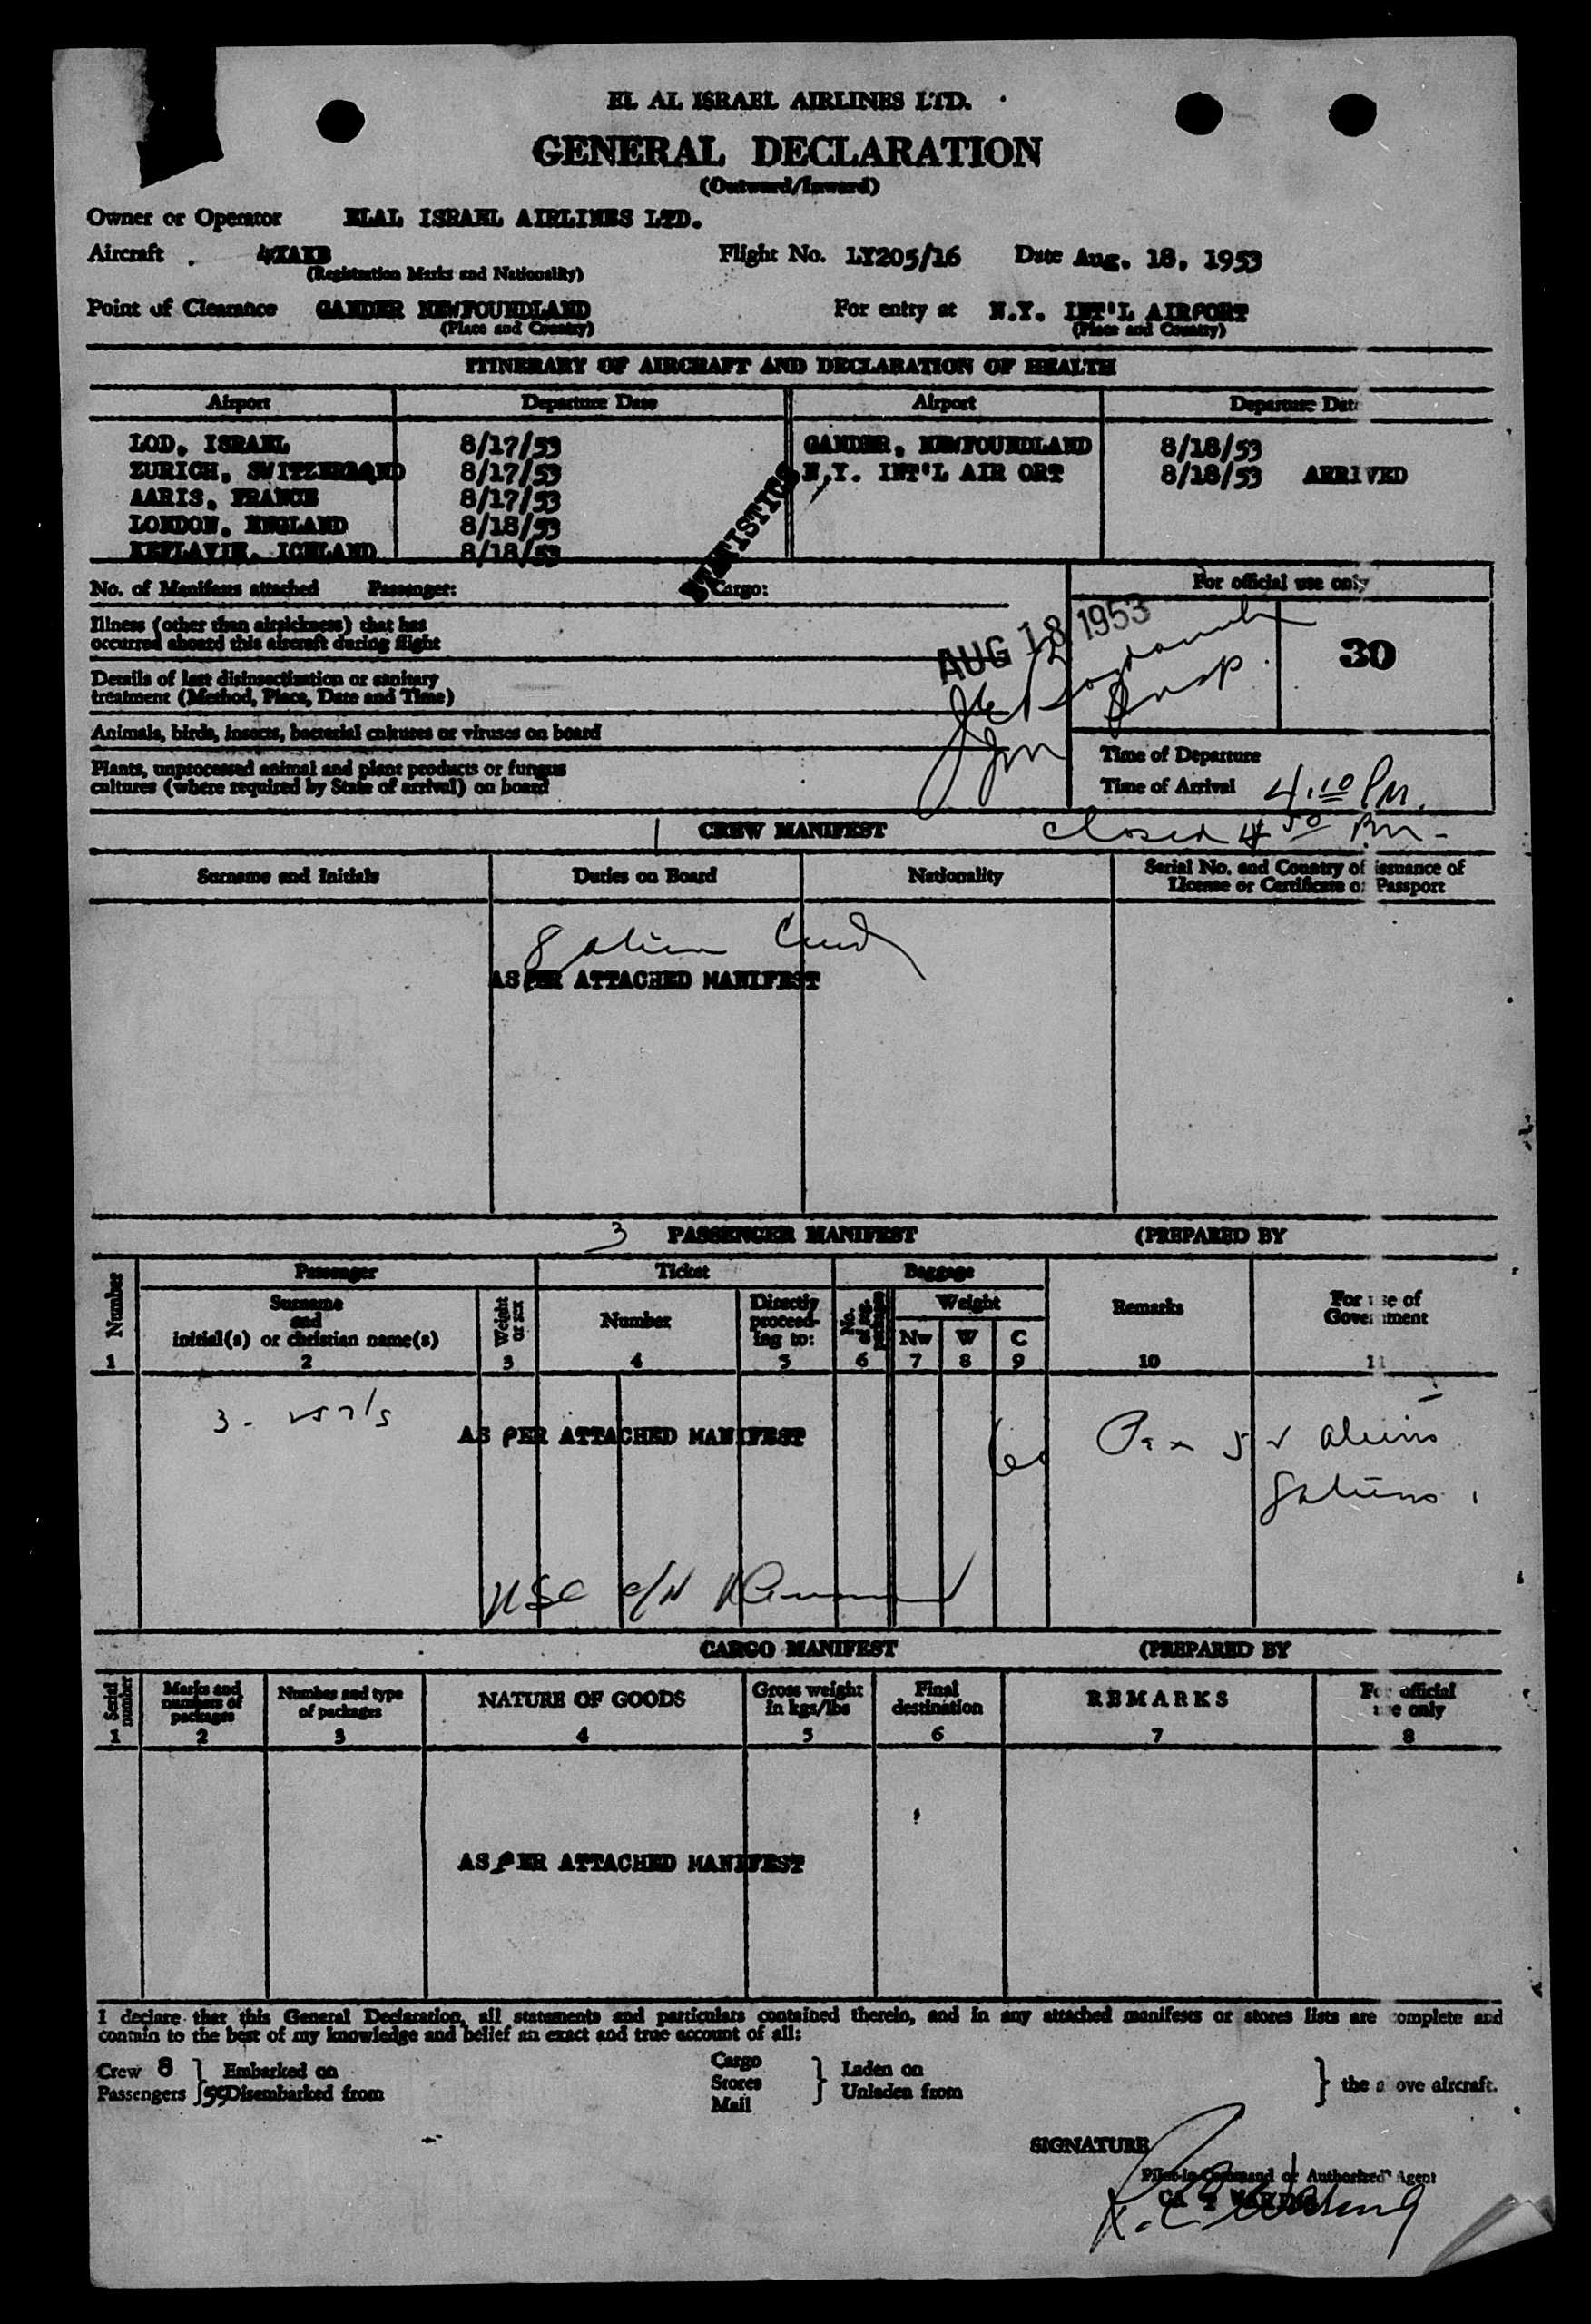 EL AL ISRAEL AIRLINES LTD.
GENERAL DECLARATION
(Outward/Inward)
Owner or Operator ELAL ISRAEL AIRLINES LTD.
Aircraft . 4XAKB Flight No. LY205/16 Date Aug. 18, 1953
(Registration Marks and Nationality)
Point of Clearance GANDER NEWFOUNDLAND For entry at N.Y. INT'L AIRPORT
(Place and Country) (Place and Country)
ITINERARY OF AIRCRAFT AND DECLARATION OF HEALTH
Airport Departure Date Airport Departure Dat
LOD, ISRAEL 8/17/53 GANDER, NEWFOUNDLAND 8/18/53
ZURICH, SWITZERLAND 8/17/53 N.Y. INT'L AIR ORT 8/18/53 ARRIVED
AARIS, FRANCE 8/17/53
LONDON, ENGLAND 8/18/53
KEFLAVIK, ICELAND 8/18/53
STATISTICS
No. of Manifests attached Passenger: Cargo: For official use only
Illness (other than airsickness) that has
occurred aboard this aircraft during flight
AUG 18 1953
30
Details of last disinsectization or sanitary
treatment (Method, Place, Date and Time)
Insp.
Animals, birds, insects, bacterial cultures or viruses on board
Time of Departure
Plants, unprocessed animal and plant products or fungus
cultures (where required by State of arrival) on board
Time of Arrival 4.10 PM.
CREW MANIFEST closed 4 50 Pm-
Surname and Initials Duties on Board Nationality Serial No. and Country of issuance of
License or Certificate or Passport
8 alien Crew
AS PER ATTACHED MANIFEST
3 PASSENGER MANIFEST (PREPARED BY
Passenger Ticket Baggage
Number Surname
and
initial(s) or christian name(s) Weight
or sex Number Directly
proceed-
ing to: No. Weight Remarks For use of
Government
Nw W C
1 2 3 4 5 6 7 8 9 10 11
3 -
AS PER ATTACHED MANIFEST
Pax 5 aliens
8 aliens
CARGO MANIFEST (PREPARED BY
Serial
number Marks and
numbers of
packages Number and type
of packages NATURE OF GOODS Gross weight
in kgs/lbs Final
destination REMARKS For official
use only
1 2 3 4 5 6 7 8
AS PER ATTACHED MANIFEST
I declare that this General Declaration, all statements and particulars contained therein, and in any attached manifests or stores lists are complete and
contain to the best of my knowledge and belief an exact and true account of all:
Crew 8 Embarked on Cargo Laden on
Passengers 59 Disembarked from Stores Unladen from the above aircraft.
Mail
SIGNATURE
Pilot-in-Command or Authorized Agent